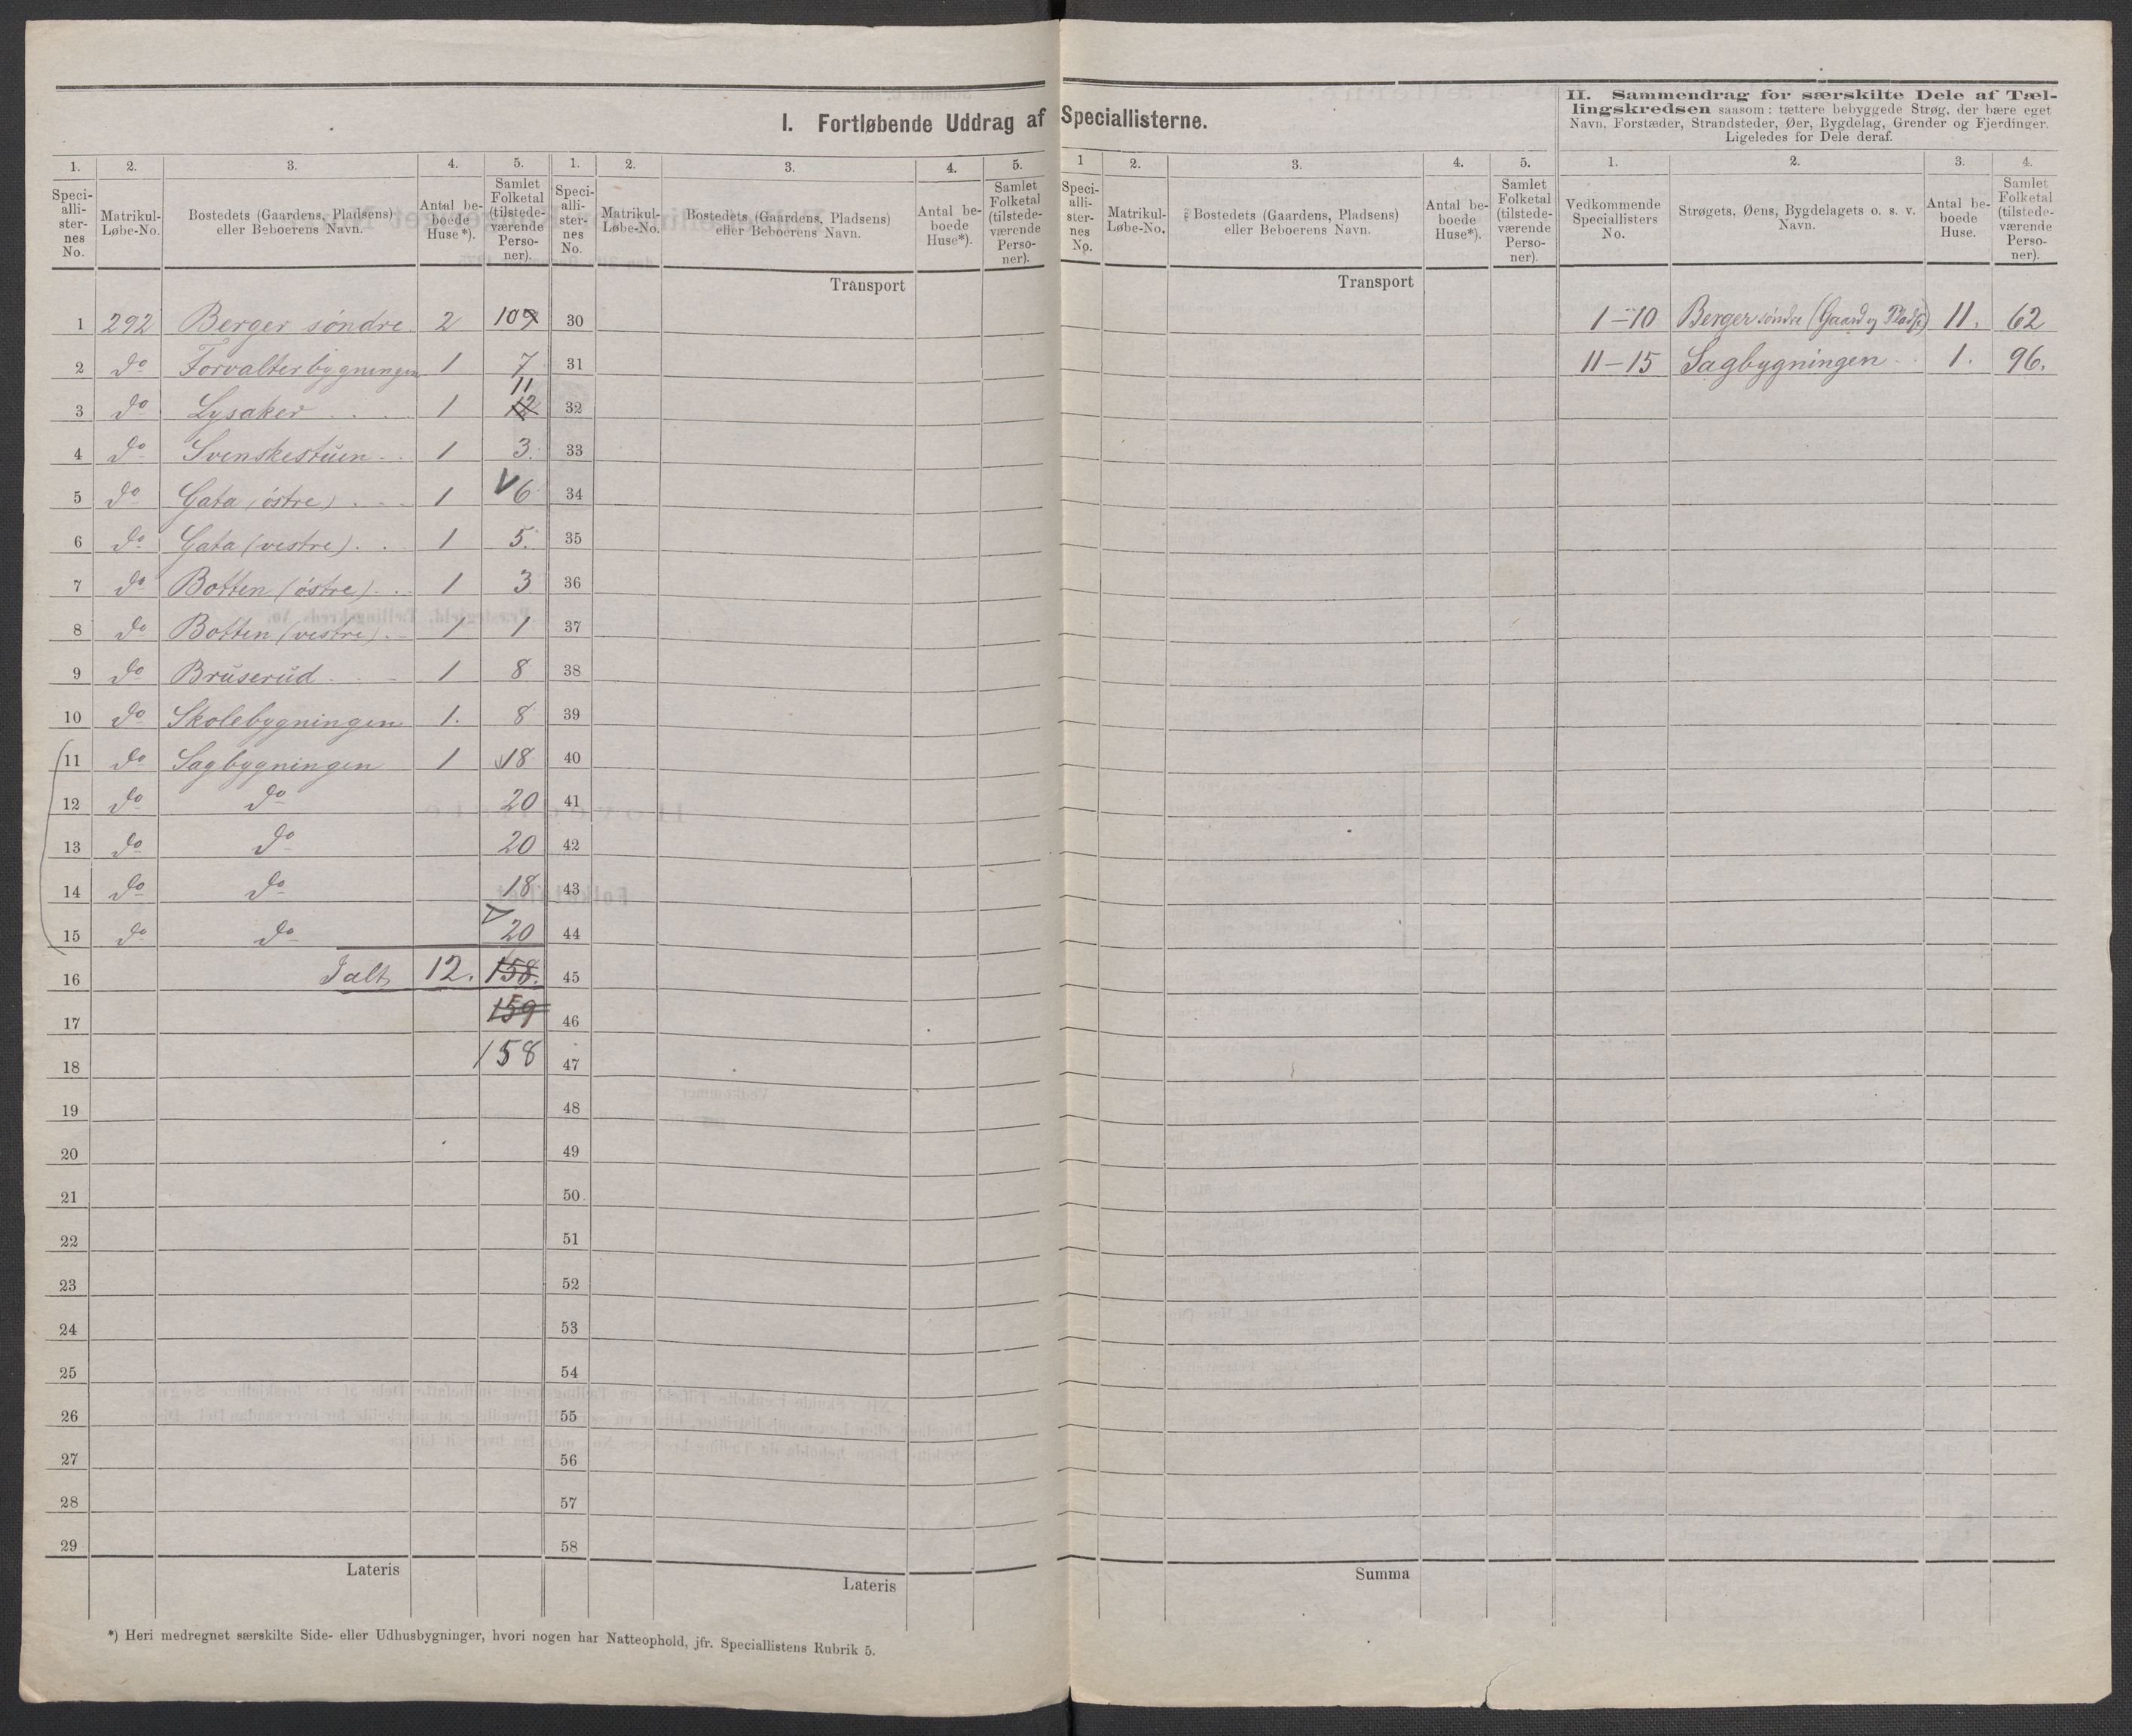 I. Fortløbende Uddrag af Speciallisterne.
II. Sammendrag for særskilte Dele af Tæl-
lingskredsen saasom: tættere bebyggede Strøg, der bære eget
Navn, Forstæder, Strandsteder, Øer, Bygdelag, Grender og Fjerdinger.
Ligeledes for Dele deraf.
1. 2. 3. 4. 5. 1. 2. 3. 4. 5. 1 2. 3. 4. 5. 1. 2. 3. 4.
Speci-alli-ster-nes No. Matrikul-Løbe-No. Bostedets (Gaardens, Pladsens) eller Beboerens Navn. Antal be-boede Huse*). Samlet Folketal (tilstede-værende Perso-ner).
Speci-alli-ster-nes No. Matrikul-Løbe-No. Bostedets (Gaardens, Pladsens) eller Beboerens Navn. Antal be-boede Huse*). Samlet Folketal (tilstede-værende Perso-ner).
Speci-alli-ster-nes No. Matrikul-Løbe-No. Bostedets (Gaardens, Pladsens) eller Beboerens Navn. Antal be-boede Huse*). Samlet Folketal (tilstede-værende Perso-ner).
Vedkommende Speciallisters No. Strøgets, Øens, Bygdelagets o. s. v. Navn. Antal be-boede Huse. Samlet Folketal (tilstede-værende Perso-ner).
Transport
Transport
1 292 Berger söndre 2 109 30
2 do Forvalterbygningen 1 7 31
11
3 do Lysaker 1 12 32
4 do Svenskestuen 1 3. 33
5 do Gata (östre) 1 6 34
6 do Gata (vestre) 1 5. 35
7 do Botten (östre) 1 3 36
8 do Botten (vestre) 1 1 37
9 do Bruserud 1 8 38
10 do Skolebygningen 1. 8 39
11 do Sagbygningen 1 18 40
12 do do 20 41
13 do do 20 42
14 do do 18 43
15 do do 20 44
16 Ialt 12. 158. 45
17 159 46
18 158 47
19 48
20 49
21 50
22 51
23 52
24 53
25 54
26 55
27 56
28 57
29 58
Lateris
Lateris
Summa
1-10 Berger söndre (Gaard og Pladse) 11. 62
11-15 Sagbygningen 1. 96.
*) Heri medregnet særskilte Side- eller Udhusbygninger, hvori nogen har Natteophold, jfr. Speciallistens Rubrik 5.